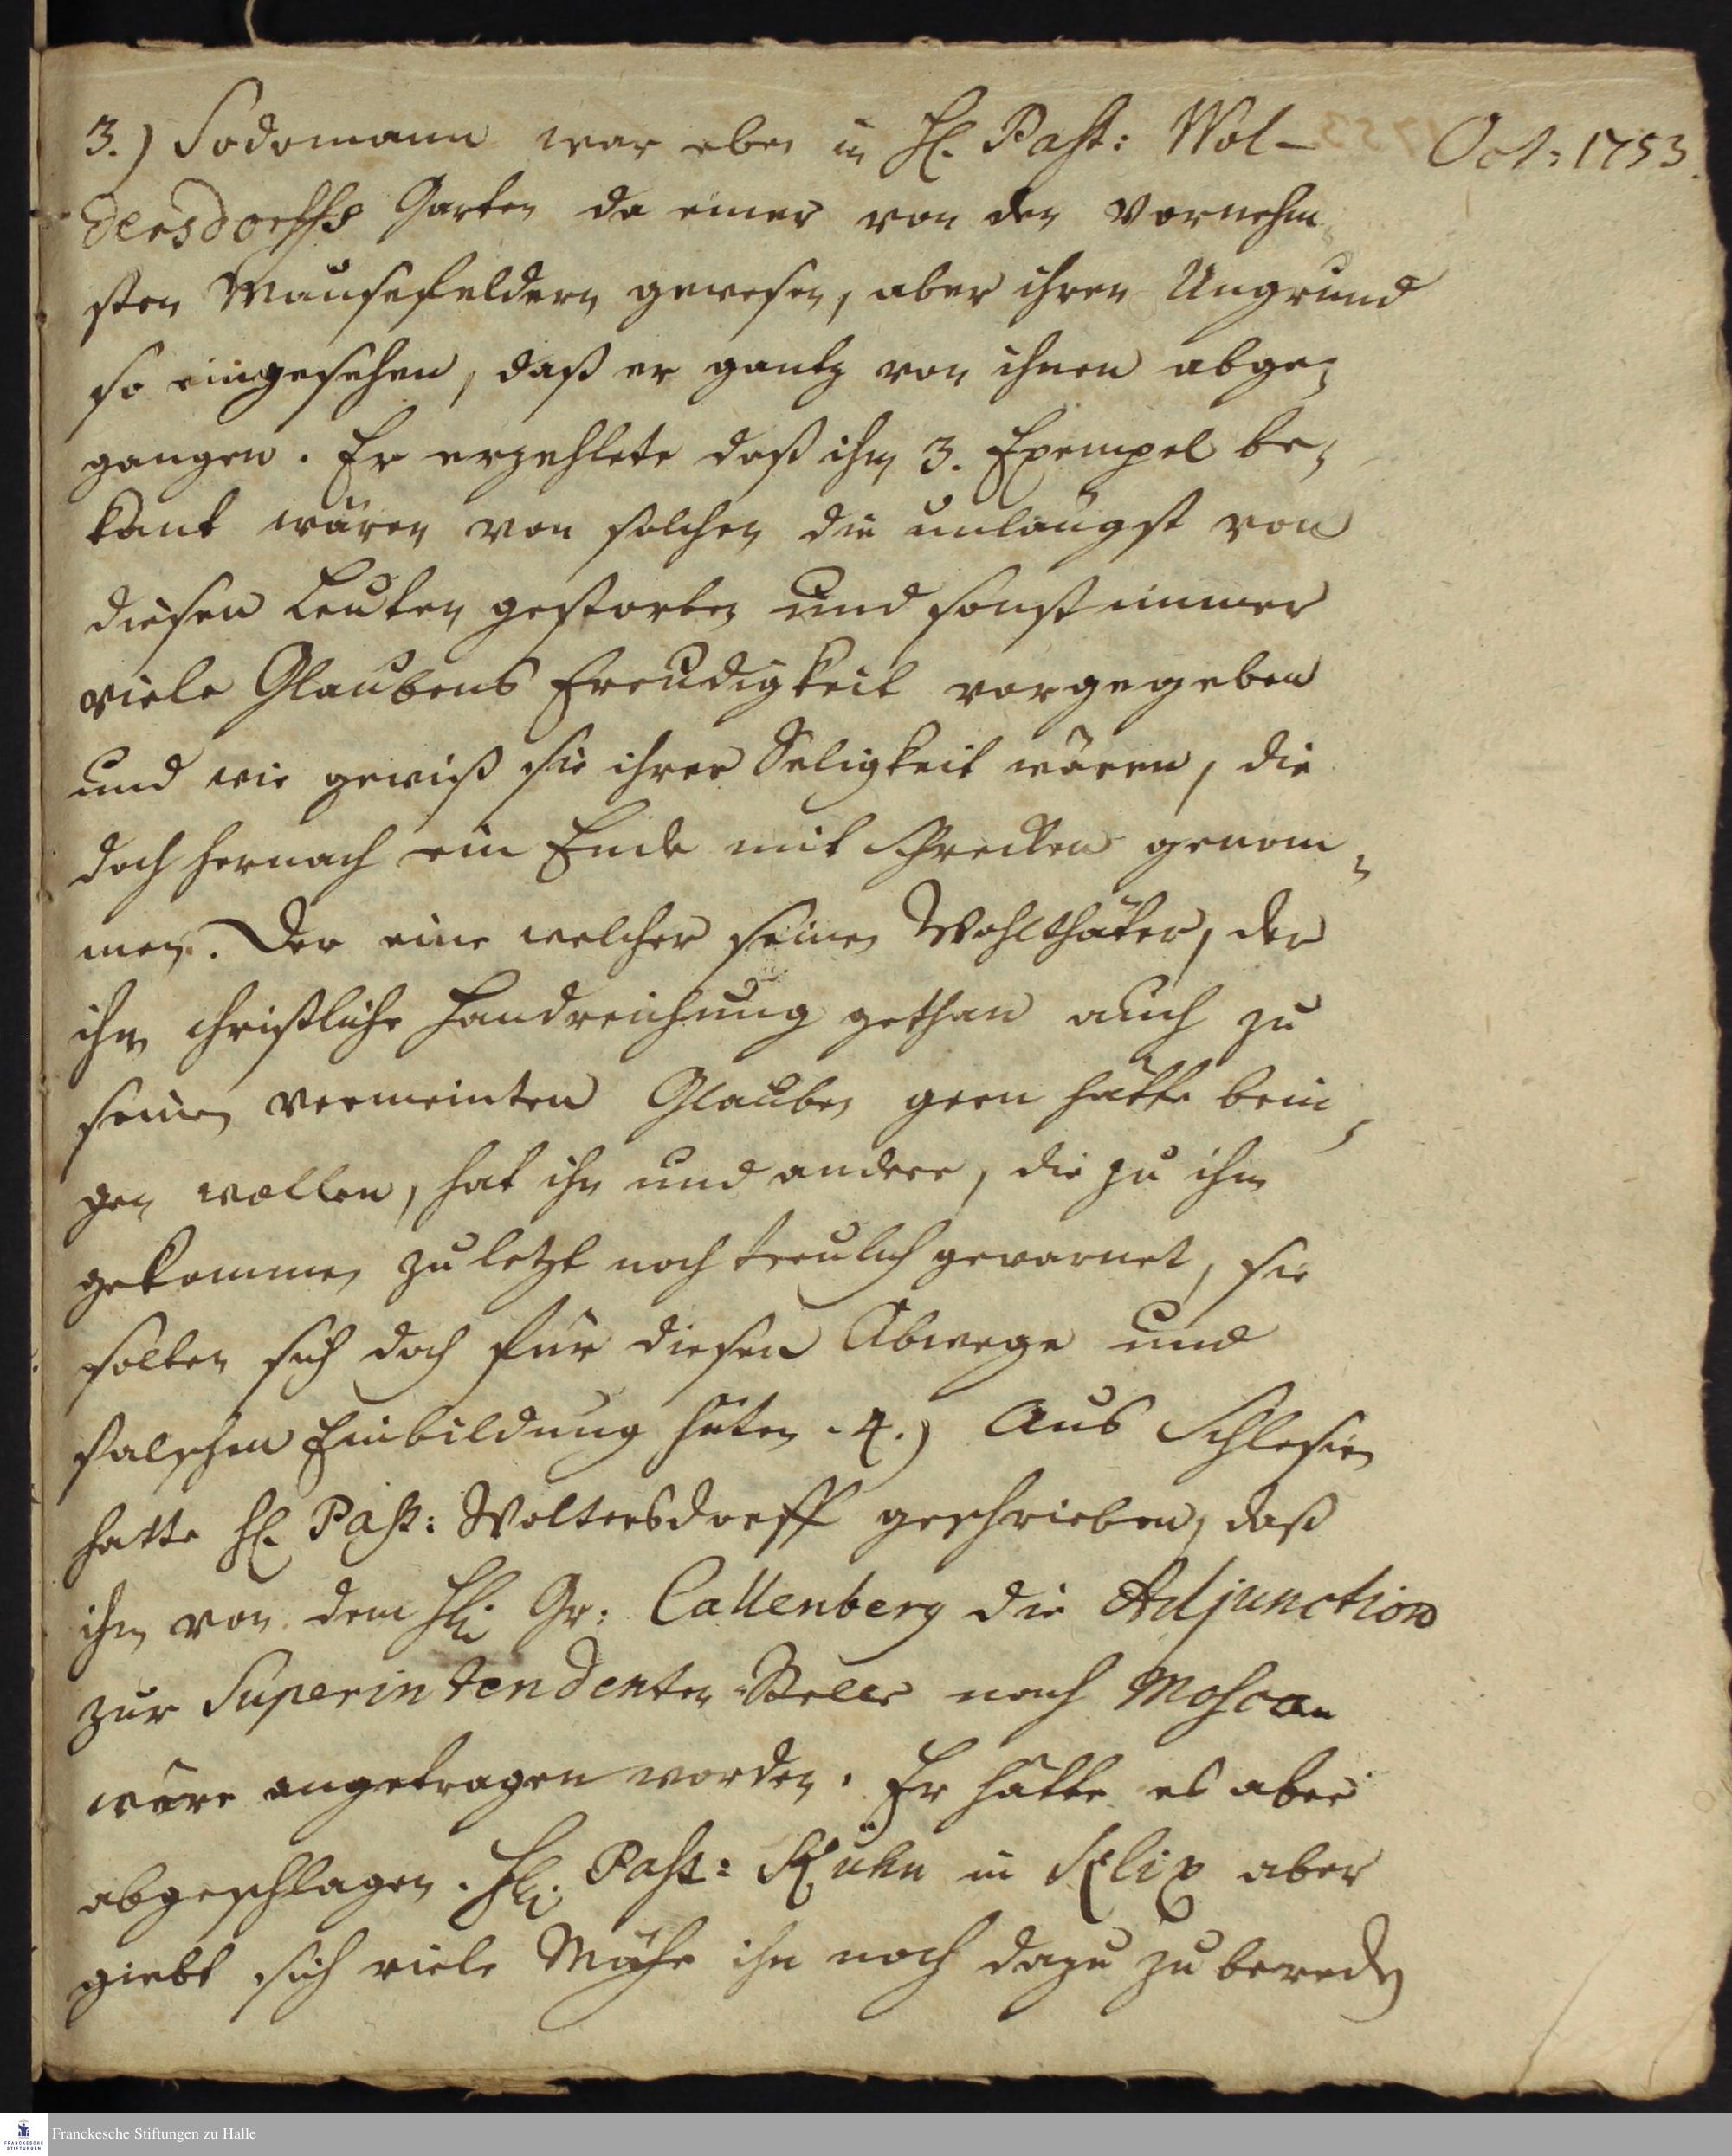 Oct: 1753.
3.) Sodomann war eben in H. Past: Wol-
dersdorffs Garten da einer von den Vornehm-
sten Mansefeldern gewesen, aber ihren Ungrund
so eingesehen, daß er gantz von ihnen abge-
gangen. Er erzehlete daß ihm 3. Exempel be-
kant wären von solchen die unlängst von
diesen Leuten gestorben und sonst immer
viele Glaubens Freudigkeit vorgegeben
und wie gewiß sie ihrer Seligkeit wären, die
doch hernach ein Ende mit Schrecken genom-
men. Der eine welcher seinen Wohlthäter, der
ihm christliche Handreichung gethan auch zu
seinen vermeinten Glauben gern hätte brin-
gen wollen, hat ihn und andere, die zu ihm
gekommen zuletzt noch treulich gewarnet, sie
solten sich doch für diesen Abwege und
falschen Einbildung hüten. 4.) Aus Schlesien
hatte H. Past: Woltersdorff geschrieben, daß
ihm von dem H. Gr: Callenberg die Adjunction
zur Superintendenten-Stelle nach Moscau
wäre angetragen worden. Er hätte es aber
abgeschlagen. H. Past: Kühn in Klix aber
giebt sich viele Mühe ihn noch dazu zu bereden
Franckesche Stiftungen zu Halle